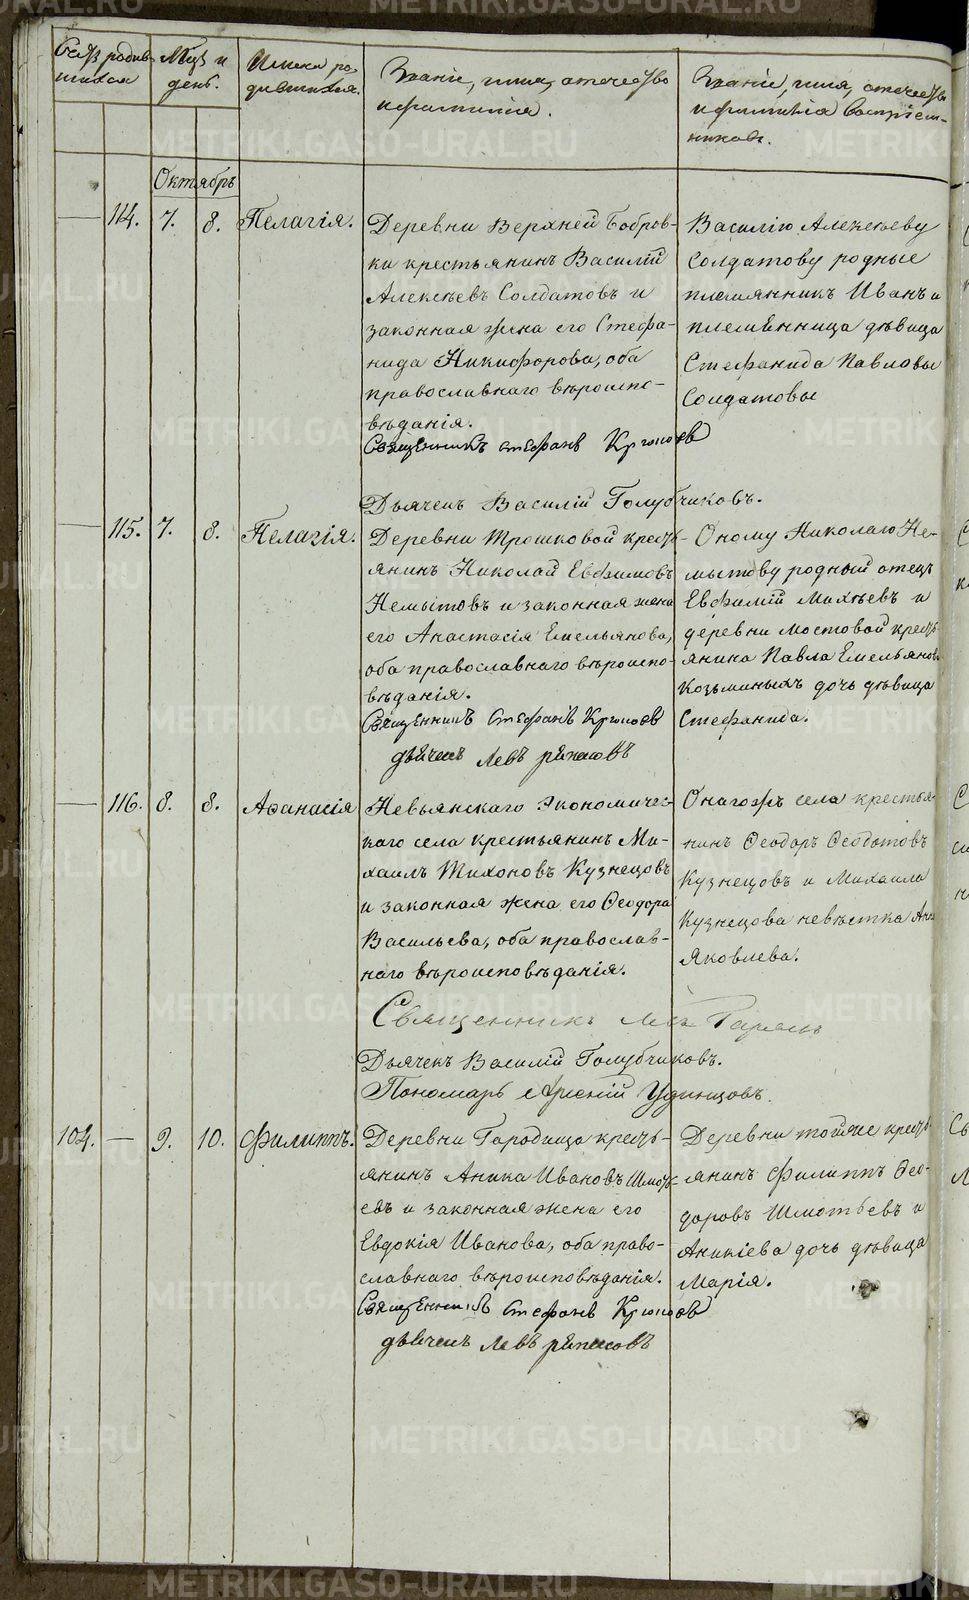 Счетъ родив-
шихся
Мѣс. и
день.
Имена ро-
дившихся.
Званіе, имя, отечество
и фамилія.
Званіе, имя, отечество
и фамилія воспріем-
никовъ.
Октябрь
114. 7. 8. Пелагія.
Деревни Верхней Бобров-
ки крестьянинъ Василій
Алексѣевъ Солдатовъ и
законная жена его Стефа-
нида Никифорова, оба
православнаго вѣроиспо-
вѣданія.
Священникъ Стефанъ
Дьячекъ Василій Голубчиковъ.
Василію Алексѣеву
Солдатову родные
племянникъ Иванъ и
племянница дѣвица
Стефанида Павловы
Солдатовы
115. 7. 8. Пелагія.
Деревни Трошковой крест-
янинъ Николай Евфимовъ
Немытовъ и законная жена
его Анастасія Емельянова,
оба православнаго вѣроиспо-
вѣданія.
Священникъ Стефанъ
дьячекъ Левъ
Оному Николаю Не-
мытову родный отецъ
Евфимій Михѣевъ и
деревни Мостовой крест-
янина Павла Емельянова
Козьминыхъ дочь дѣвица
Стефанида.
116. 8. 8. Аѳанасія
Невьянскаго Экономичес-
каго села крестьянинъ Ми-
хаилъ Тихоновъ Кузнецовъ
и законная жена его Ѳеодора
Васильева, оба православ-
наго вѣроисповѣданія.
Священникъ
Дьячекъ Василій Голубчиковъ.
Пономарь Арсеній Удинцовъ.
Онагожъ села крестья-
нинъ Ѳеодоръ Ѳедотовъ
Кузнецовъ и Михаила
Кузнецова невѣстка Анна
Яковлева.
104. — 9. 10. Филиппъ.
Деревни Городища крест-
янинъ Аника Ивановъ Шмоть-
евъ и законная жена его
Евдокія Иванова, оба право-
славнаго вѣроисповѣданія.
Священникъ Стефанъ
дьячекъ Левъ
Деревни тойже крест-
янинъ Филиппъ Ѳео-
доровъ Шмотьевъ и
Аникіева дочь дѣвица
Марія.
METRIKI.GASO-URAL.RU